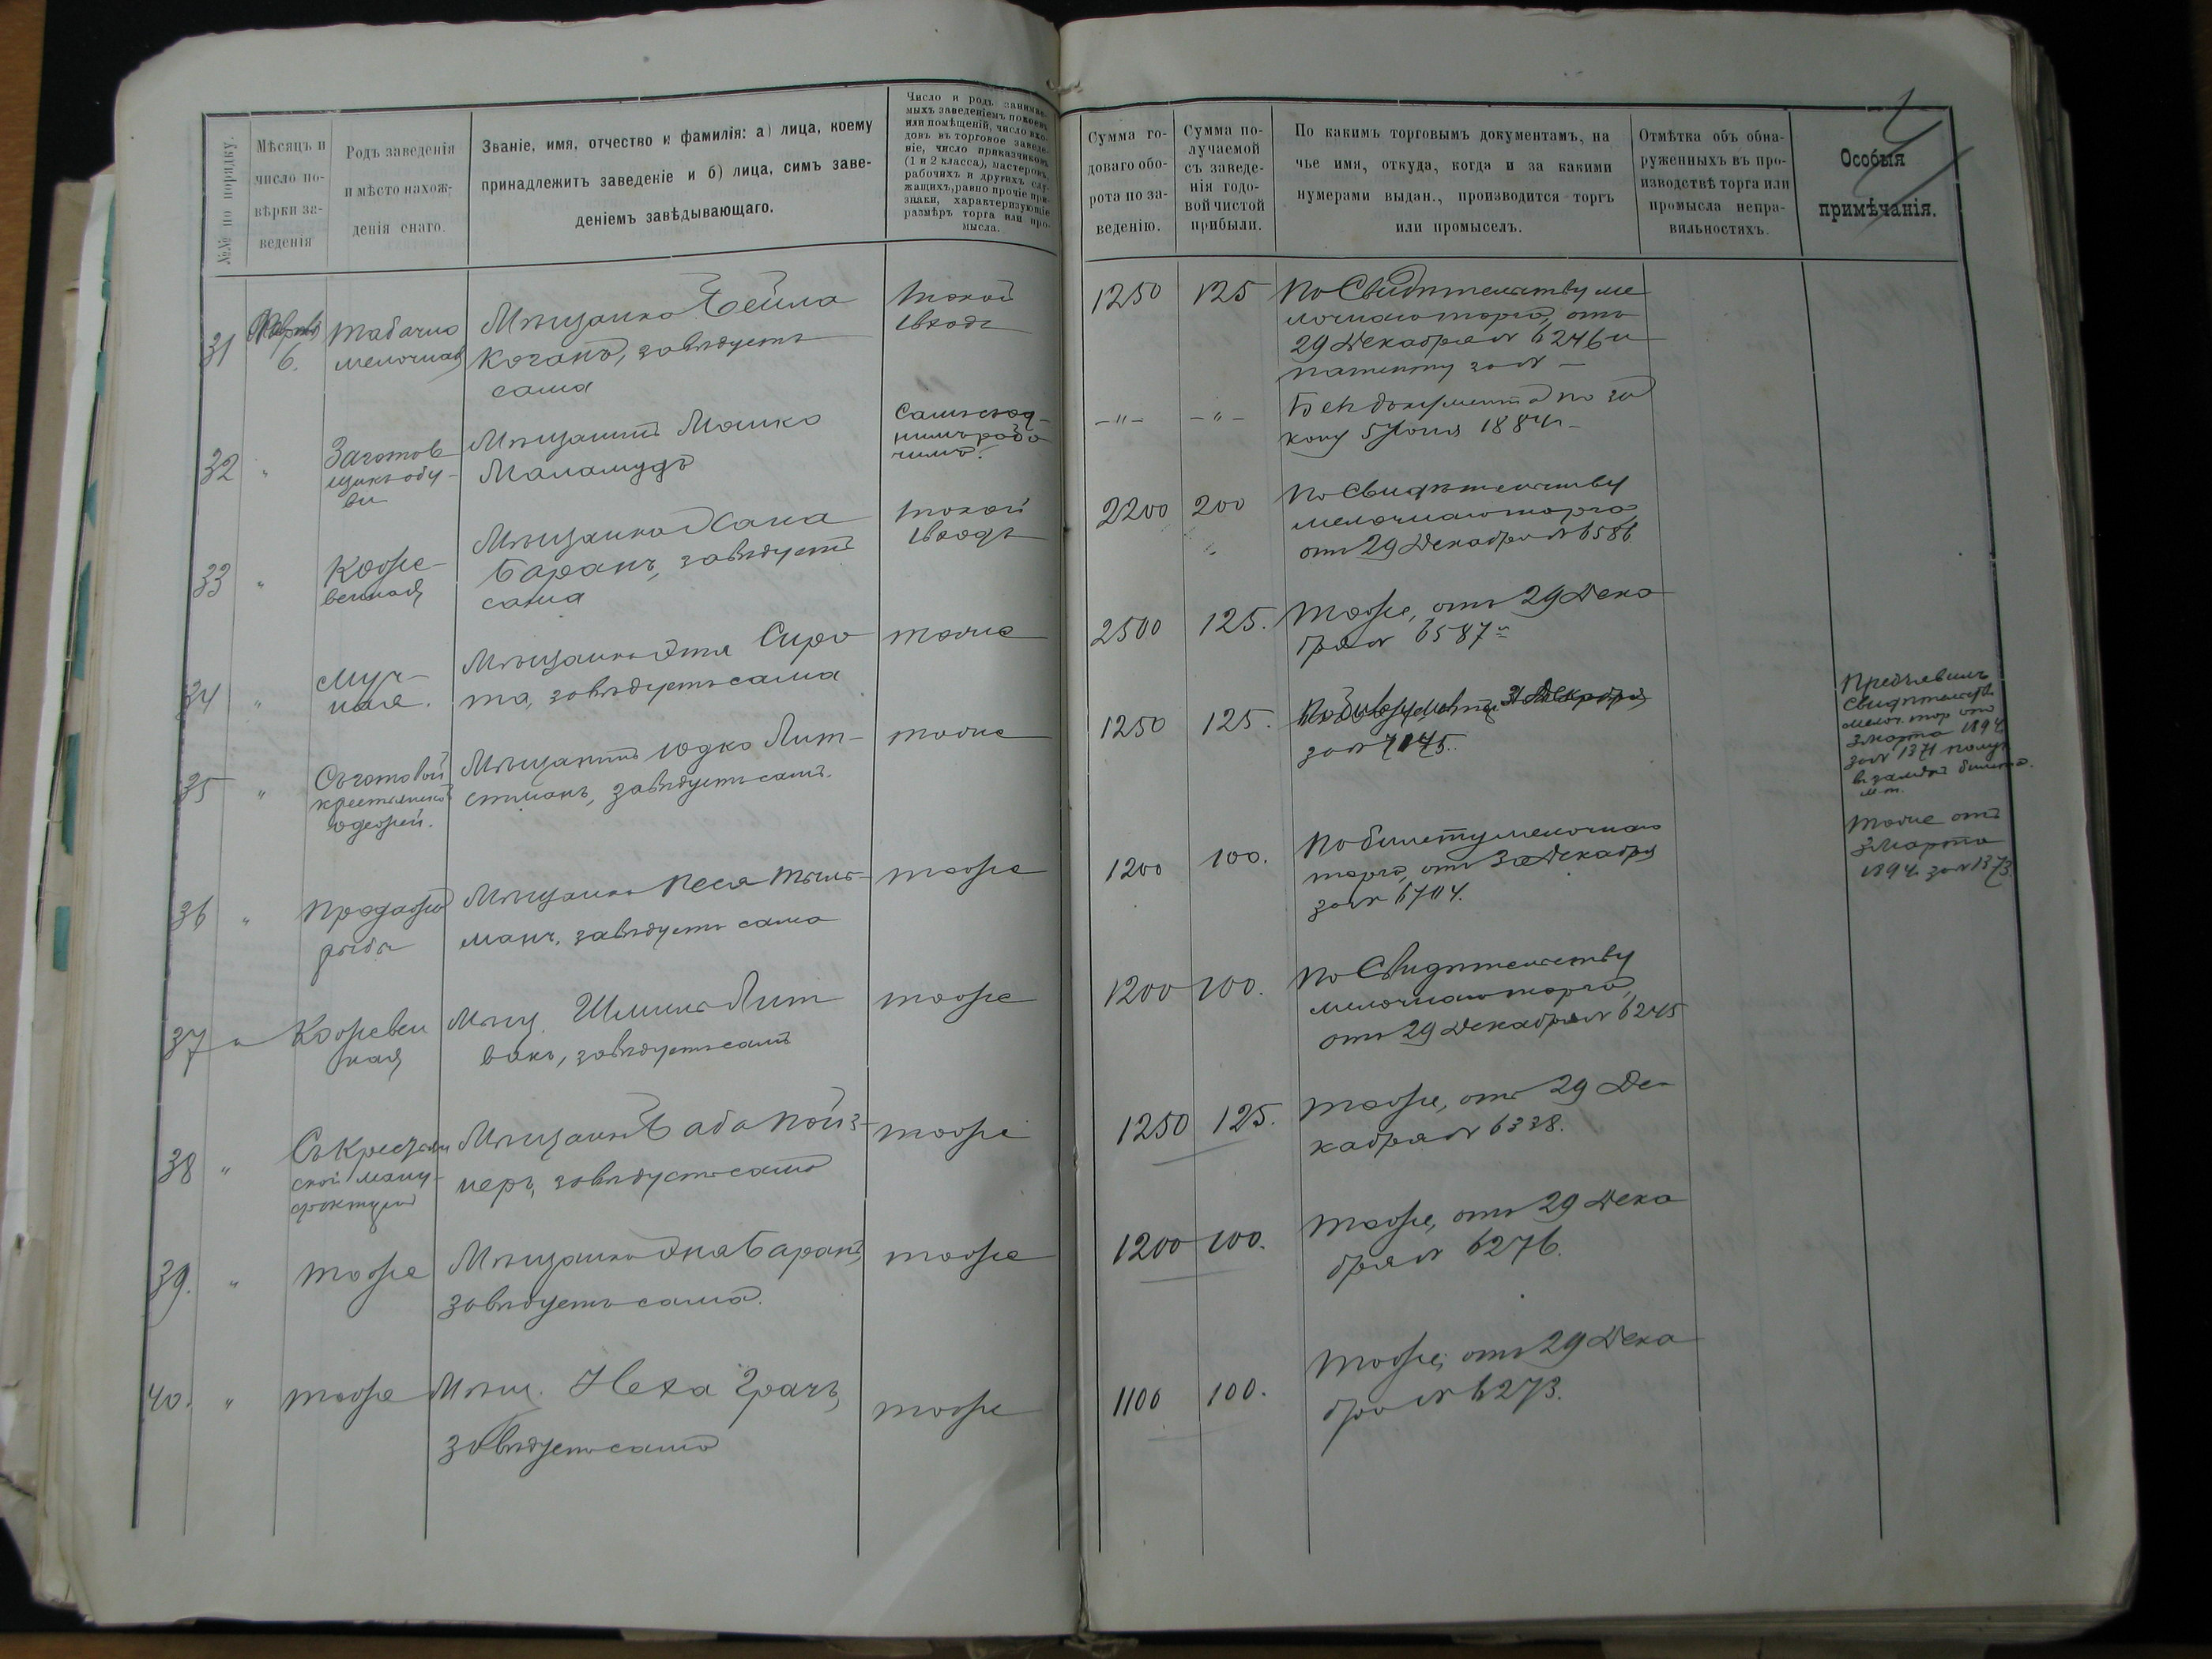 №№ по порядку.
Мѣсяцъ и
число по-
вѣрки за-
веденія
Родъ заведенія
и мѣсто нахож-
денія онаго.
Званіе, имя, отчество и фамилія: а) лица, коему
принадлежитъ заведеніе и б) лица, симъ заве-
деніемъ завѣдывающаго.
Число и родъ занимае-
мыхъ заведеніемъ покоевъ
или помѣщеній, число вхо-
довъ въ торговое заведе-
ніе, число приказчиковъ
(1 и 2 класса), мастеровъ,
рабочихъ и другихъ слу-
жащихъ, равно прочіе при-
знаки, характеризующіе
размѣръ торга или про-
мысла.
Сумма го-
доваго обо-
рота по за-
веденію.
Сумма по-
лучаемой
съ заведе-
нія годо-
вой чистой
прибыли.
По какимъ торговымъ документамъ, на
чье имя, откуда, когда и за какими
нумерами выдан., производится торгъ
или промыселъ.
Отмѣтка объ обна-
руженныхъ въ про-
изводствѣ торга или
промысла непра-
вильностяхъ.
Особыя
примѣчанія.
31
6.
Табачно
мелочная
Мѣщанка Бейла
Коганъ, завѣдуетъ
сама
1 покой
1 входъ
1250
125
По Свидѣтельству ме
лочнаго торга, отъ
29 Декабря № 6246 и
патенту за № —
32
"
Заготов
щикъ обу-
ви
Мѣщанинъ Мошко
Маламудъ
Самъ съ од-
нимъ рабо
чимъ.
— " —
— " —
Безъ документа по за
кону 5 Іюня 1884 г.
33
"
Коже-
венная
Мѣщанка Хана
Баранъ, завѣдуетъ
сама
1 покой
1 входъ
2200
200
По Свидѣтельству
мелочнаго торга
отъ 29 Декабря № 6586
34
"
Муч-
ная.
Мѣщанка Этя Сиро
та, завѣдуетъ сама
тоже
2500
125.
Тоже, отъ 29 Дека
бря № 6587
35
"
Съ готовой
крестьянской
одежей.
Мѣщанинъ Юдко Лит-
сманъ, завѣдуетъ самъ.
тоже
1250
125.
31 Декабря
за № 7175.
Предъявилъ
Свидѣтельств
мелоч. тор. отъ
3 Марта 1894
за № 1371 получ
взамѣнъ билета
м. т.
36
"
Продажа
рыбы
Мѣщанка Песя
манъ, завѣдуетъ сама
тоже
1200
100.
По билету мелочнаго
торга, отъ 30 Декабря
за № 6704.
Тоже отъ
3 Марта
1894 за № 1373
37
"
Кожевен
ная
Мѣщ. Шмиль Лит
вакъ, завѣдуетъ самъ
тоже
1200
100.
По Свидѣтельству
мелочнаго торга,
отъ 29 Декабря № 6245
38
"
Съ Крестьян
ской ману-
фактурой
Мѣщанинъ Аба Пойз-
неръ, завѣдуетъ самъ
тоже
1250
125.
Тоже, отъ 29 Де-
кабря № 6338.
39.
"
тоже
Мѣщанка Эня Баранъ,
завѣдуетъ сама.
тоже
1200
100.
Тоже, отъ 29 Дека
бря № 6276.
40.
"
тоже
Мѣщ. Неха Грачъ,
завѣдуетъ сама
тоже
1100
100.
Тоже, отъ 29 Дека
бря № 6273.